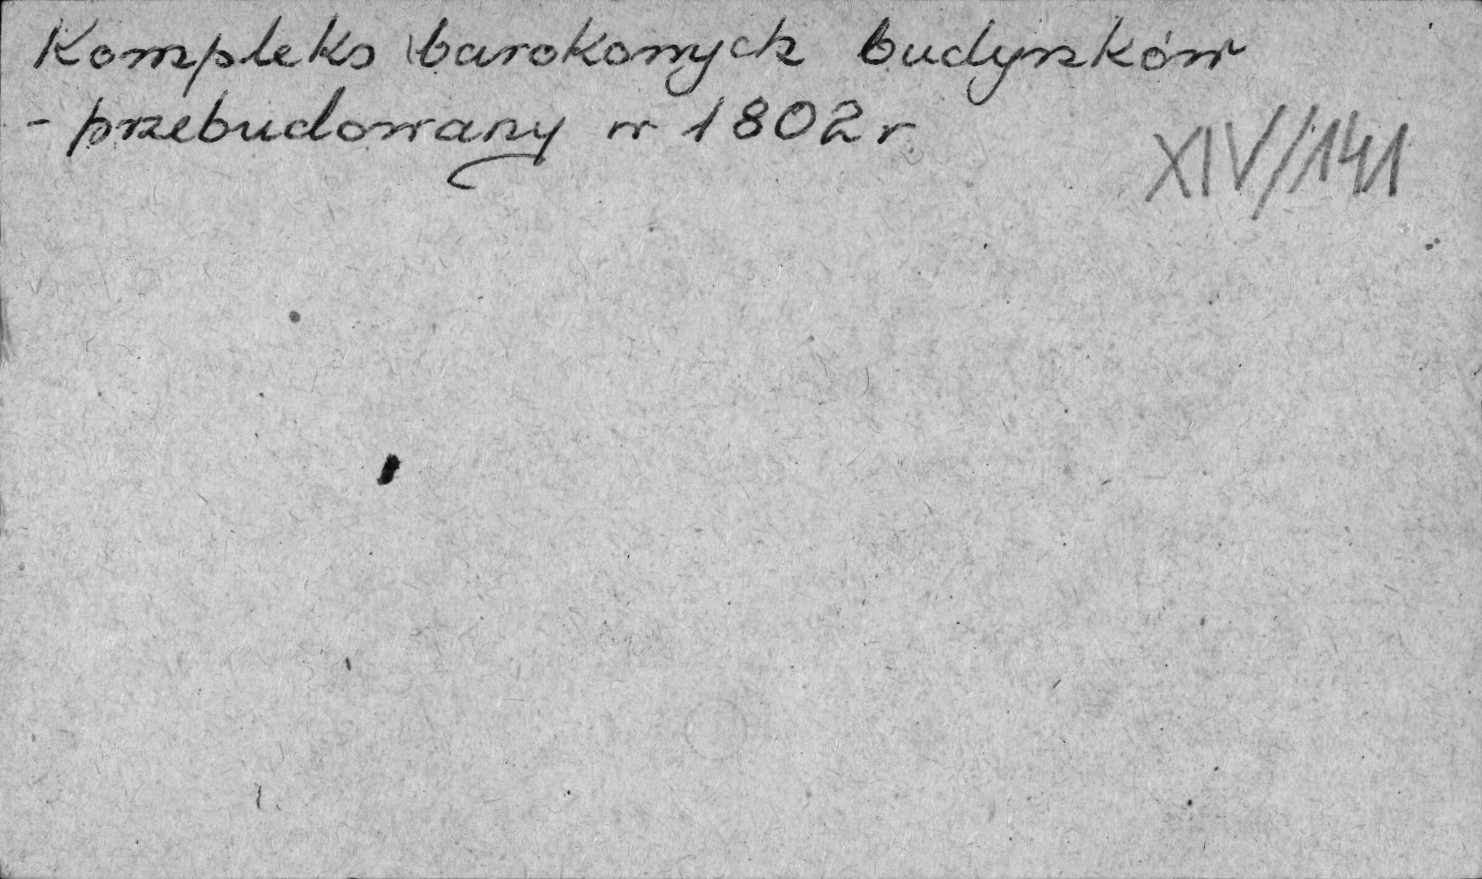 Kompleks barokowych budynków
- przebudowany w 1802 r.
XIV/141